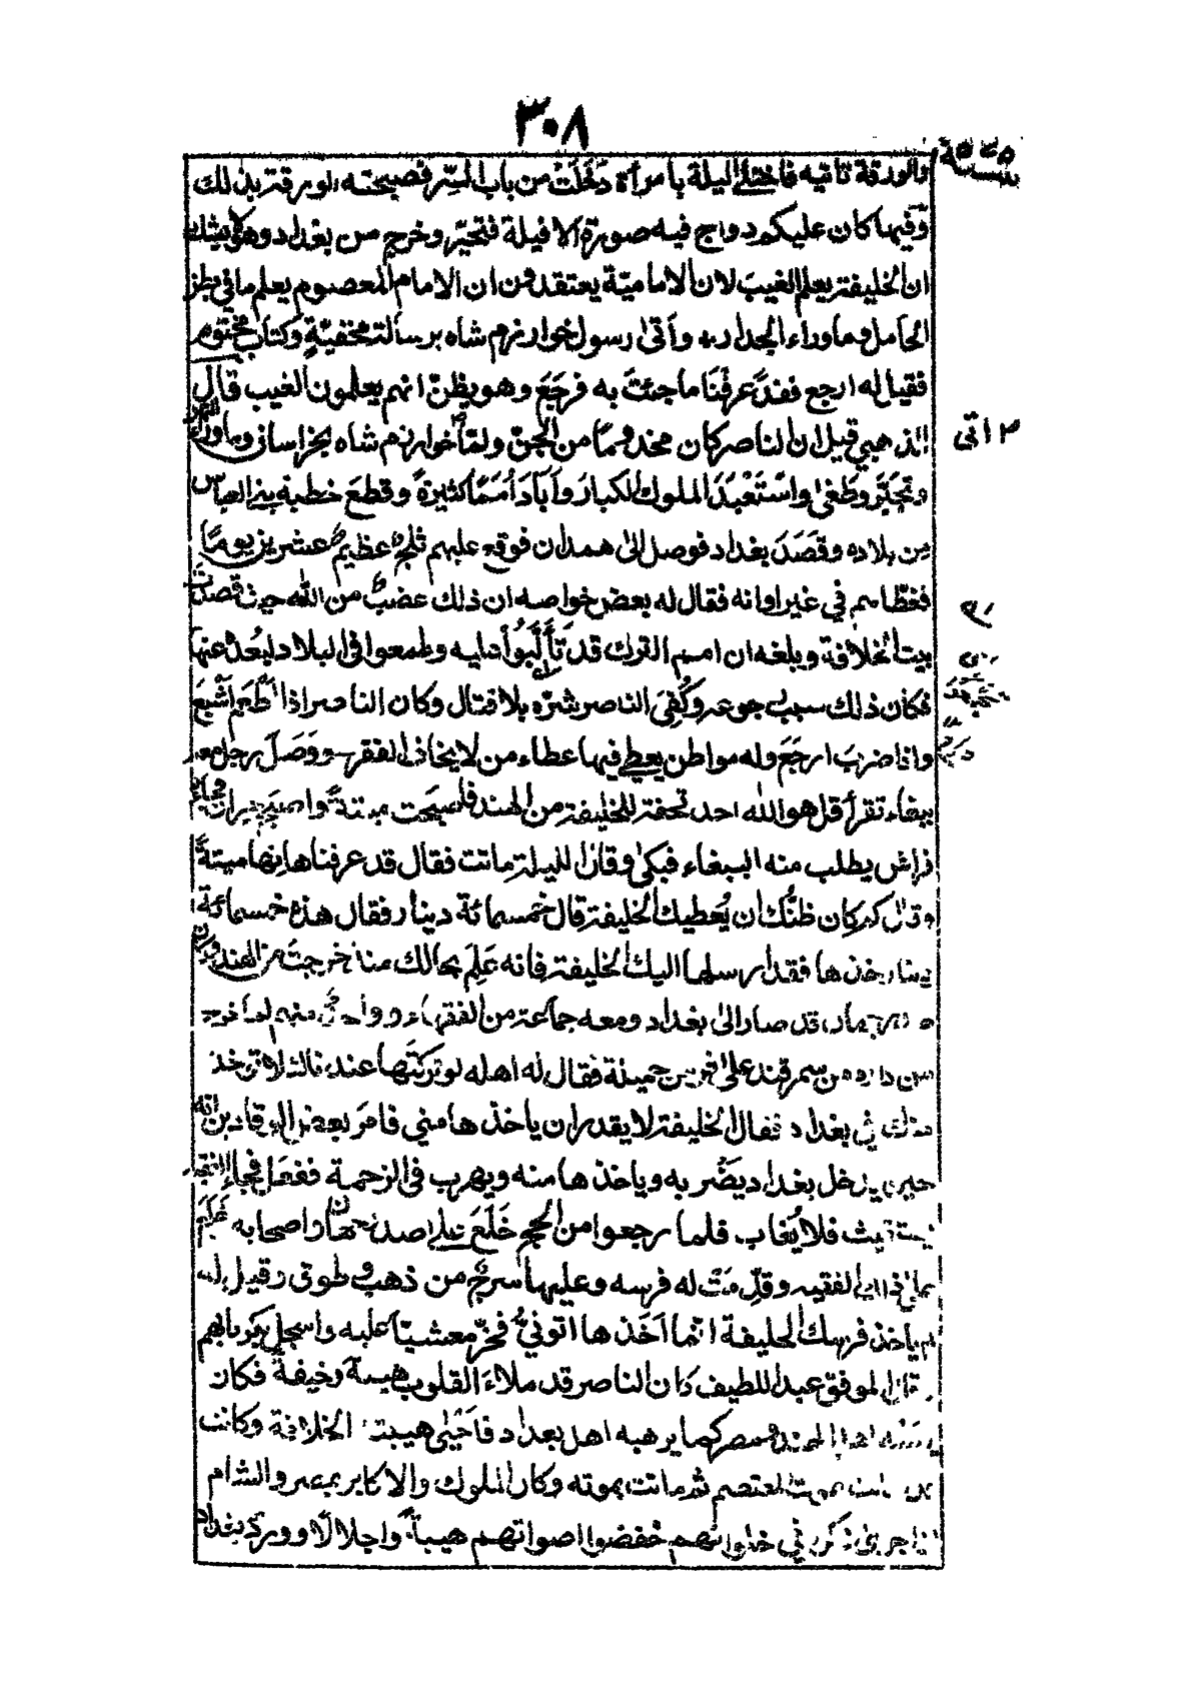 ٣٠٨
والورقة تاتيه فاختلى ليلة بامرأة دَخَلَتْ من باب السِّر فصبحته الورقة بذلك
وَفيها كان عليكم دواج فيه صورة الافيلة فتحيّر وخرج من بغداد وهو لا يشك
ان الخليفة يعلم الغيب لان الاماميّة يعتقدون ان الامام المعصوم يعلم ما في بطن
الحامل وما وراء الجدار وأتى رسول خوارزم شاه برسالة مخفيّةٍ وكتاب مختوم
فقيل له ارجع فقد عرفْنَا ما جئتَ به فرجَعَ وهو يظنّ انهم يعلمون الغيب قال
الذهبي قيل ان الناصر كان مخدوما من الجنّ ولمّا خوارزم شاه بخراسان وما وراء النهر
٢ اتى
وتجبَّر وطَغىٰ واسْتَعْبَدَ الملوك الكبار وأبَادَ أمَمًا كثيرةً وقطعَ خطبة بني العباس
من بلاده وقَصَدَ بغداد فوصل الىٰ همدان فوقع عليهم ثلجٌ عظيمٌ عشرين يومًا
فغطاهم في غير اوانه فقال له بعض خواصه ان ذلك غضبٌ من الله حيث قصدتَ
بيت الخلافة وبلغه ان امم الترك قد تَألَّبُوا عليه وطمعوا في البلاد لبُعْدِهٖ عنها
فكان ذلك سبب رجوعه وكُفِيَ الناصر شرّه بلا قتال وكان الناصر اذا أطْعَمَ أشْبَعَ
واذا ضربَ اَوْجَعَ وله مواطن يعطي فيها عطاء من لا يخاف الفقر ووَصَلَ رجل معه
ببغاء تقرأ قل هو الله احد تحفة للخليفة من الهند فاصبحت ميتةً واصبح حيران فجاءه
فراش يطلب منه الببغاء فبكىٰ وقال الليلة ماتت فقال قد عرفناها انها ميتةً
وقال كم كان ظنُّك ان يُعطيك الخليفة قال خمسمائة دينار فقال هذه خمسمائة
دينار خذها فقد ارسلها اليك الخليفة فانه عَلِمَ بحالك منذ خرجتَ من الهند وكان
صدر جهان قد صار الىٰ بغداد ومعه جماعة من الفقهاء وواحدٌ منهم لما خرج
من داره من سمرقند علىٰ فرس جميلة فقال له اهله لو تركتَها عندنا لئلا تؤخذ
منك في بغداد فقال الخليفة لا يقدر ان ياخذها مني فامرَ بعض الوقادين انه
حين يدخل بغداد يضْربه وياخذها منه ويهرب في الزحمة ففعل فجاء الفقيه
يستغيث فلا يُغاث فلما رجعوا من الحج خَلَعَ علىٰ صدر جهان واصحابه
الفقيه وقدِّمَتْ له فرسه وعليها سرجٌ من ذهب وطوق وقيل له
لم ياخذ فرسك الخليفة انما اَخَذَها اتونيٌّ فخرّ مغشيّاً عليه واسجل بكرامتهم
وقال الموفق عبد اللطيف كان الناصر قد ملاءَ القلوب هيبةً وخيفةً فكان
يرهبه اهل الهند ومصر كما يرهبه اهل بغداد فاَحْيٰى هيبة الخلافة وكانت
قد ماتت بموت المعتصم ثم ماتت بموته وكان الملوك والاكابر بمصر والشام
اذا جرىٰ ذكره في خلواتهم خفضوا اصواتهم هيبةً واجلالًا وورد بغداد